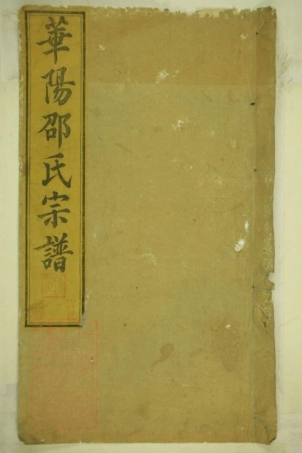 華陽邵氏宗譜